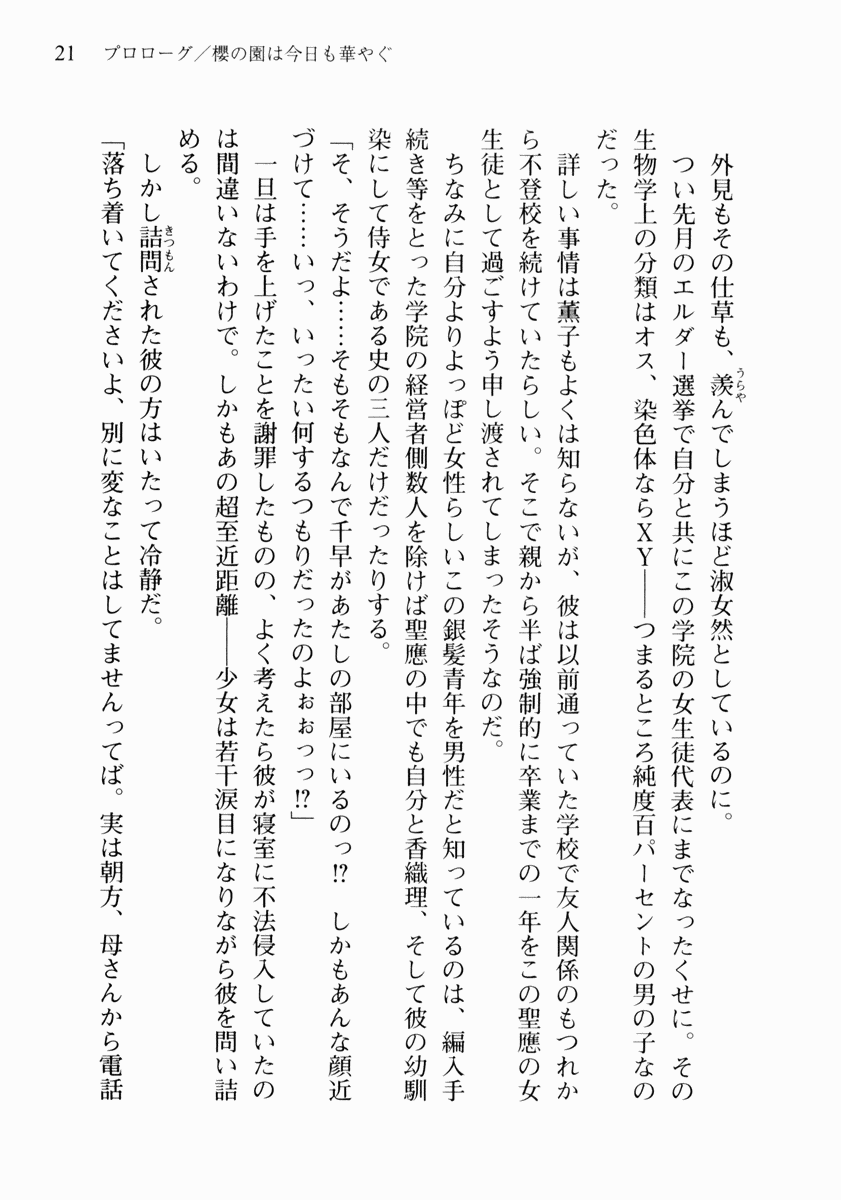 21　プロローグ／櫻の園は今日も華やぐ
外見もその仕草も、羨んでしまうほど淑女然としているのに。
うらや
つい先月のエルダー選挙で自分と共にこの学院の女生徒代表にまでなったくせに。その
生物学上の分類はオス、染色体ならＸＹ――つまるところ純度百パーセントの男の子なの
だった。
詳しい事情は薫子もよくは知らないが、彼は以前通っていた学校で友人関係のもつれか
ら不登校を続けていたらしい。そこで親から半ば強制的に卒業までの一年をこの聖應の女
生徒として過ごすよう申し渡されてしまったそうなのだ。
ちなみに自分よりよっぽど女性らしいこの銀髪青年を男性だと知っているのは、編入手
続き等をとった学院の経営者側数人を除けば聖應の中でも自分と香織理、そして彼の幼馴
染にして侍女である史の三人だけだったりする。
「そ、そうだよ……そもそもなんで千早があたしの部屋にいるのっ!?　しかもあんな顔近
づけて……いっ、いったい何するつもりだったのよぉぉっっ!?」
一旦は手を上げたことを謝罪したものの、よく考えたら彼が寝室に不法侵入していたの
は間違いないわけで。しかもあの超至近距離――少女は若干涙目になりながら彼を問い詰
める。
しかし詰問された彼の方はいたって冷静だ。
きつもん
「落ち着いてくださいよ、別に変なことはしてませんってば。実は朝方、母さんから電話